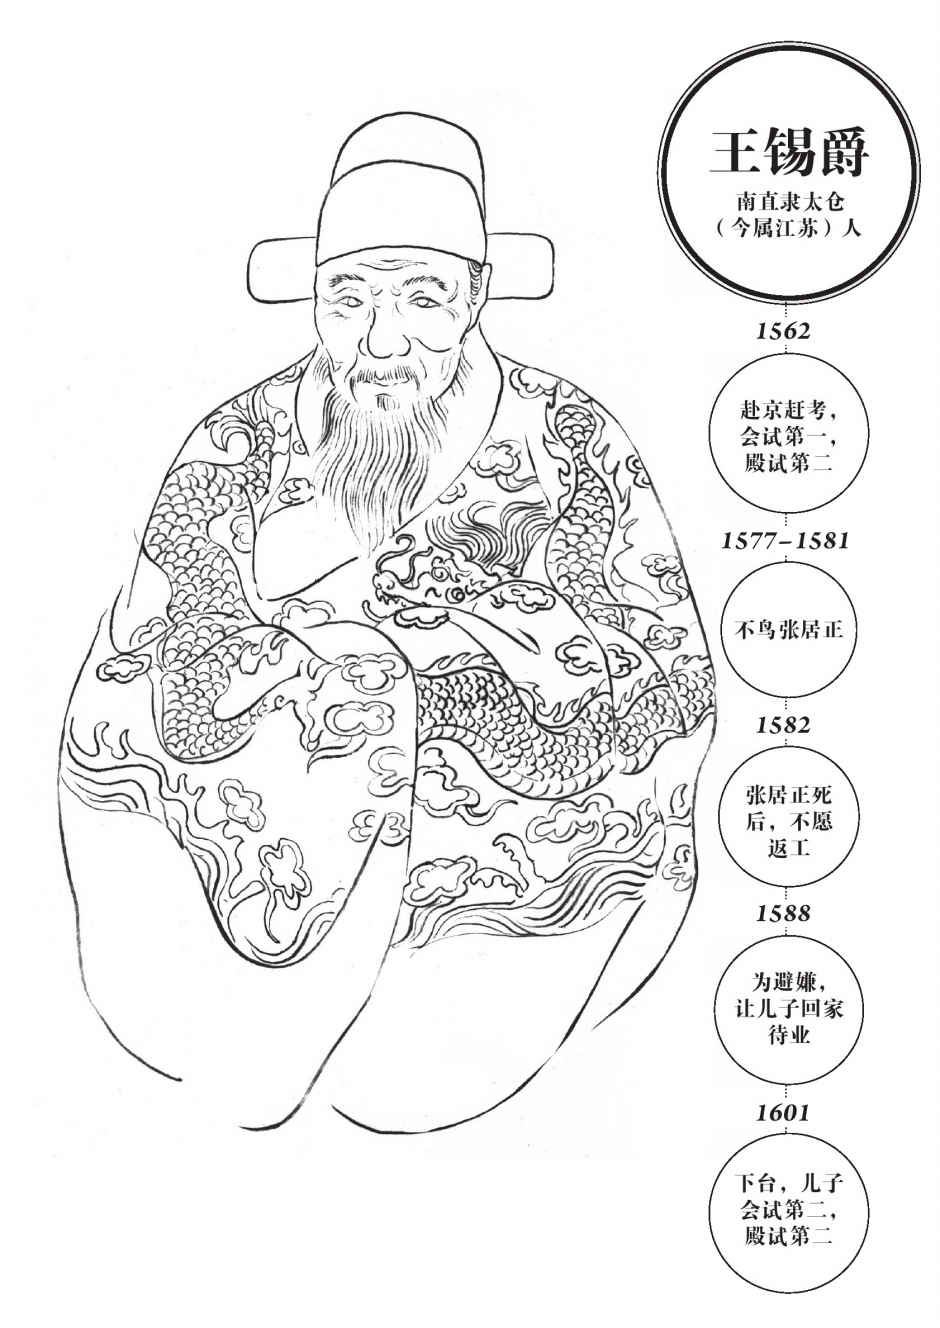 王锡爵
南直隶太仓
（今属江苏）人
1562
赴京赶考，
会试第一，
殿试第二
1577–1581
不鸟张居正
1582
张居正死
后，不愿
返工
1588
为避嫌，
让儿子回家
待业
1601
下台，儿子
会试第二，
殿试第二